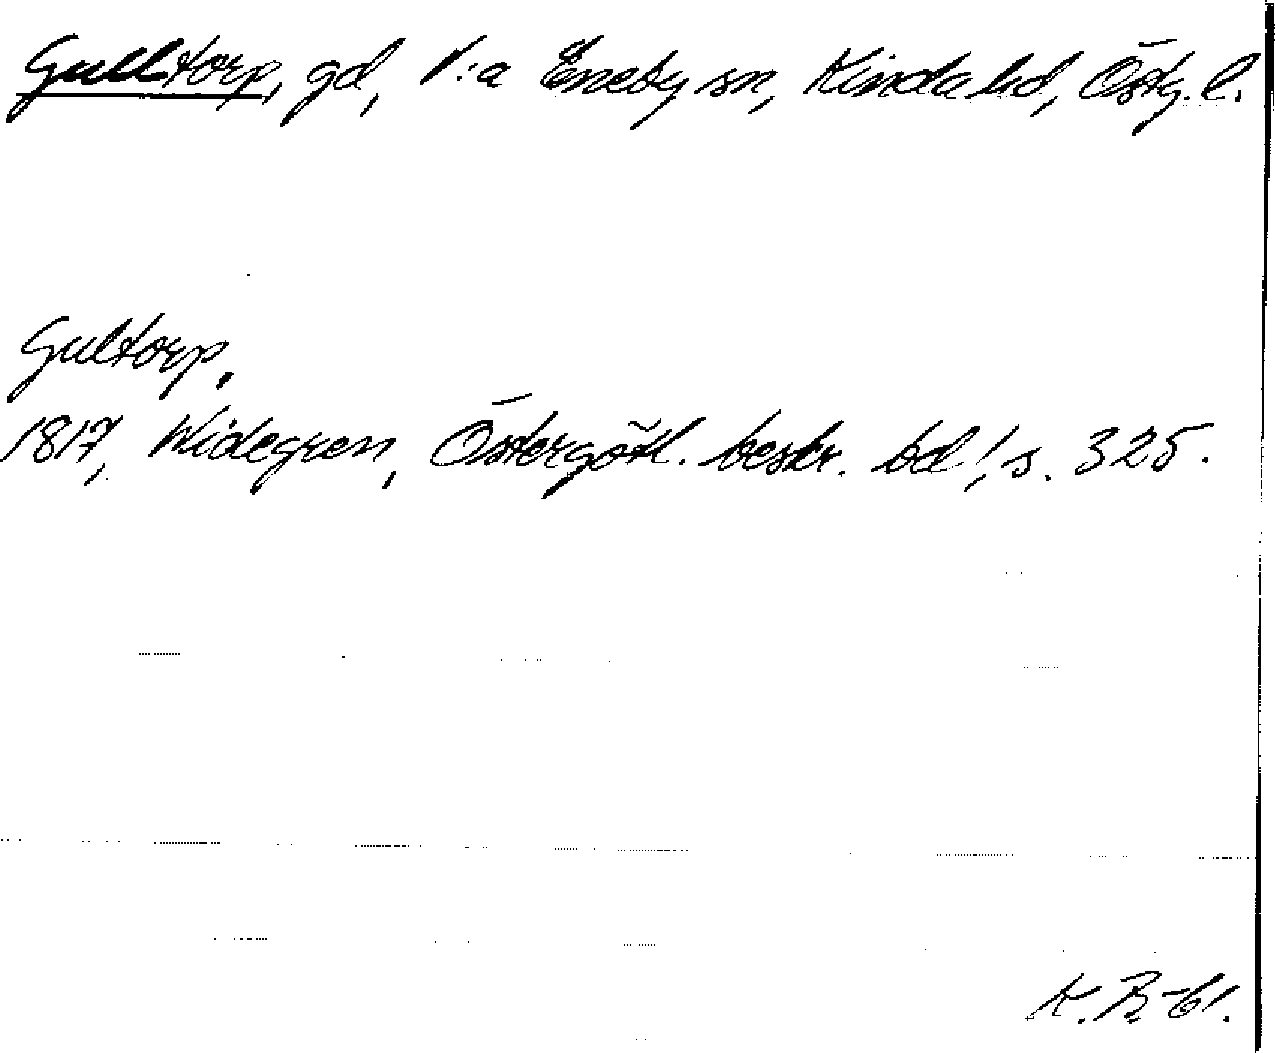 Gulltorp, gd, V:a Eneby sn, Kinda hd, Östg. l.
Gultorp,
1817, Widegren, Östergötl. beskr. bd 1, s. 325.
K. B-61.